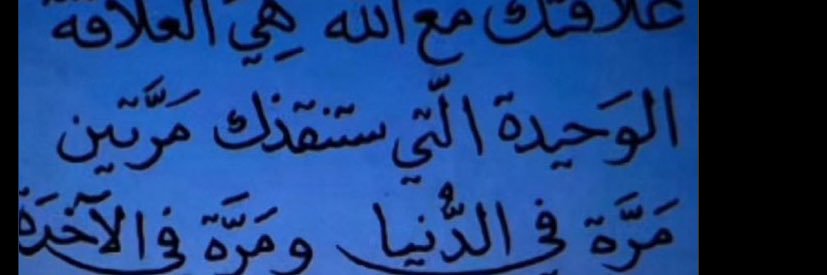 علاقتك مع الله هِيَ العلاقة
الوَحيدة الّتي ستنقذك مَرَّتين
مَرَّة في الدُّنيا ومَرَّة في الآخرة